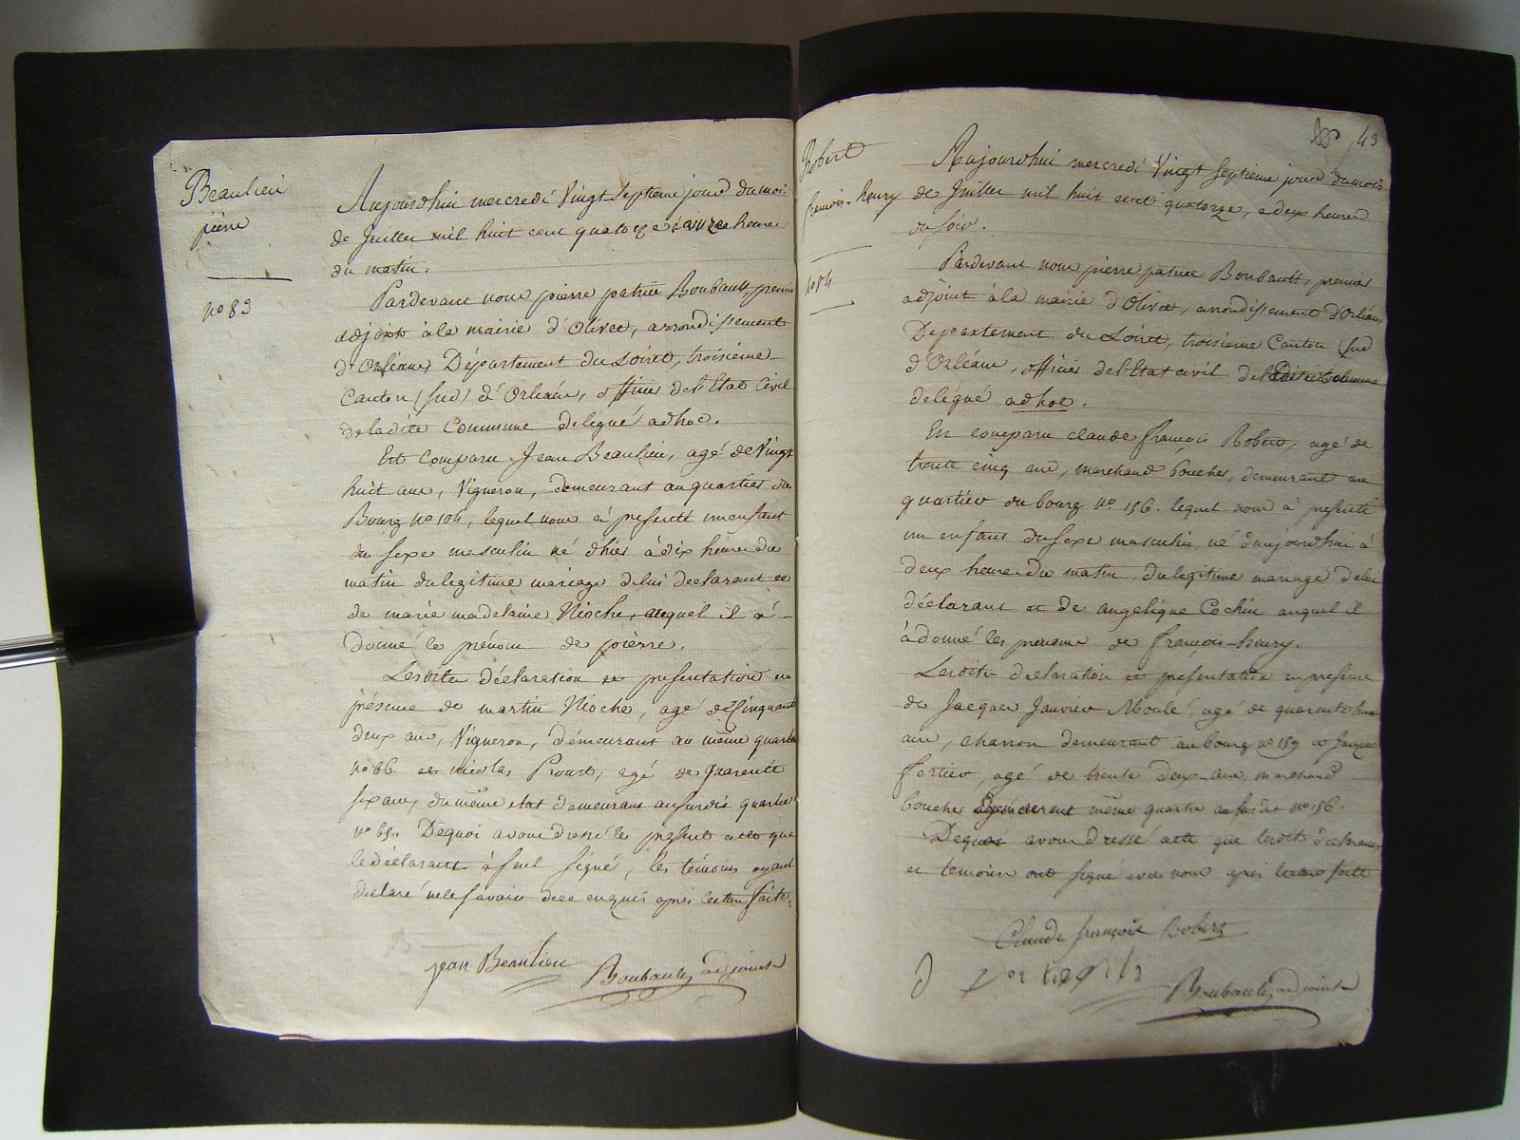 Beaulieu
pierre
no 83
Aujourdhui mercredi Vingt Septieme jour du mois
de Juillet mil huit cent quatorze à onze heures
du matin.
Pardevant nous pierre patrice Boubault, premier
adjoint à la mairie d'Olivet, arrondissement
d'Orléans Département du Loiret, troisieme
Canton (sud) d'Orléans, officier de l'Etat Civil
de ladite Commune delégué adhoc.
Est Comparu Jean Beaulieu, agé de Vingt
huit ans, Vigneron, demeurant au quartier du
Bourg no 104, lequel nous a presenté un enfant
du sexe masculin né d'hier à dix heures du
matin du legitime mariage de lui declarant et
de marie madelaine Nioche, auquel il a
donné le prénom de pierre.
Lesdites déclaration et presentation en
présence de martin Nioche, agé de Cinquante
deux ans, Vigneron, démeurant au même quartier
no 86 et nicolas agé de quarente
six ans, du même état demeurant au susdit quartier
no Dequoi avons dressé le present acte que
le déclarant a seul signé, les témoins ayant
declaré ne le savoir de ce enquis après lecture faite.
jean Beaulieu Boubault adjoint
43
Robert
francois-henry
no 84
Aujourdhui mercredi Vingt Septieme jour du mois
de Juillet mil huit cent quatorze, a deux heures
du soir.
Pardevant nous pierre patrice Boubault, premier
adjoint à la mairie d'Olivet, arrondissement d'Orléans,
Departement du Loiret, troisieme Canton (sud
d'Orléans, officier de l'Etat civil de ladite Commune
delégué adhoc.
Est comparu claude françois Robert, agé de
trente cinq ans, marchand boucher, demeurant au
quartier du bourg no 156. lequel nous à presenté
un enfant du sexe masculin né d'aujourdhui à
deux heures du matin, du legitime mariage de lui
déclarant et de angelique Cochin auquel il
à donné les prenoms de françois-henry.
Lesdites declaration et presentation en presence
de Jacques Janvier Moulé, agé de quarente huit
ans, charron demeurant au bourg no 159 et
fortier, agé de trente deux ans, marchand
boucher demeurant même quartier au susdit no 156.
Dequoi avons dressé acte que lesdits declarant
et temoins ont signé avec nous après lecture faite
Claude françois Robert
Boubault adjoint